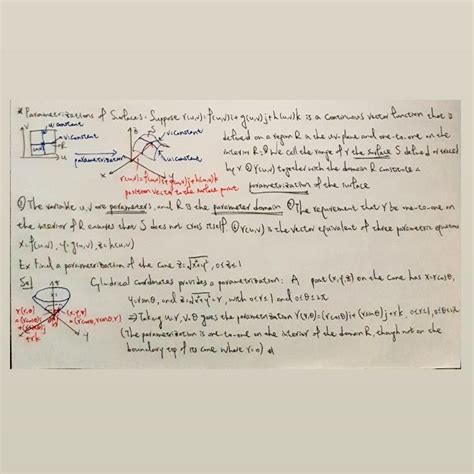 * Parametrizations of Surfaces: Suppose r(u,v)=f(u,v)i+g(u,v)j+h(u,v)k is a continuous vector function that is
defined on a region R in the uv-plane and one-to-one on the
interior of R. We call the range of r the surface S defined or traced
by r r(u,v) together with the domain R constitute a
parametrization of the surface
v
u=constant
v=constant
R
(u,v)
u
parametrization
z
v=constant
u=constant
x
y
r(u,v)=f(u,v)i+g(u,v)j+h(u,v)k
position vector to the surface point
① The variable u,v are parameters, and R is the parameter domain ② The requirement that r be one-to-one on
the interior of R ensures that S does not cross itself ③ r(u,v) is the vector equivalent of three parametric equations
x=f(u,v), y=g(u,v), z=h(u,v)
Ex Find a parametrization of the cone z=√x²+y², 0≤z≤1
Sol
Cylindrical coordinates provides a parametrization: A point (x,y,z) on the cone has x=rcosθ,
y=rsinθ, and z=√x²+y²=r, with 0≤r≤1 and 0≤θ≤2π
⇒ Taking u=r, v=θ gives the parametrization r(r,θ)=(rcosθ)i+(rsinθ)j+rk, 0≤r≤1, 0≤θ≤2π
(The parametrization is one-to-one on the interior of the domain R, though not on the
boundary tip of its cone where r=0)
r(r,θ)
=(rcosθ)i
+(rsinθ)j
+rk
(x,y,z)
=(rcosθ,rsinθ,r)
x
y